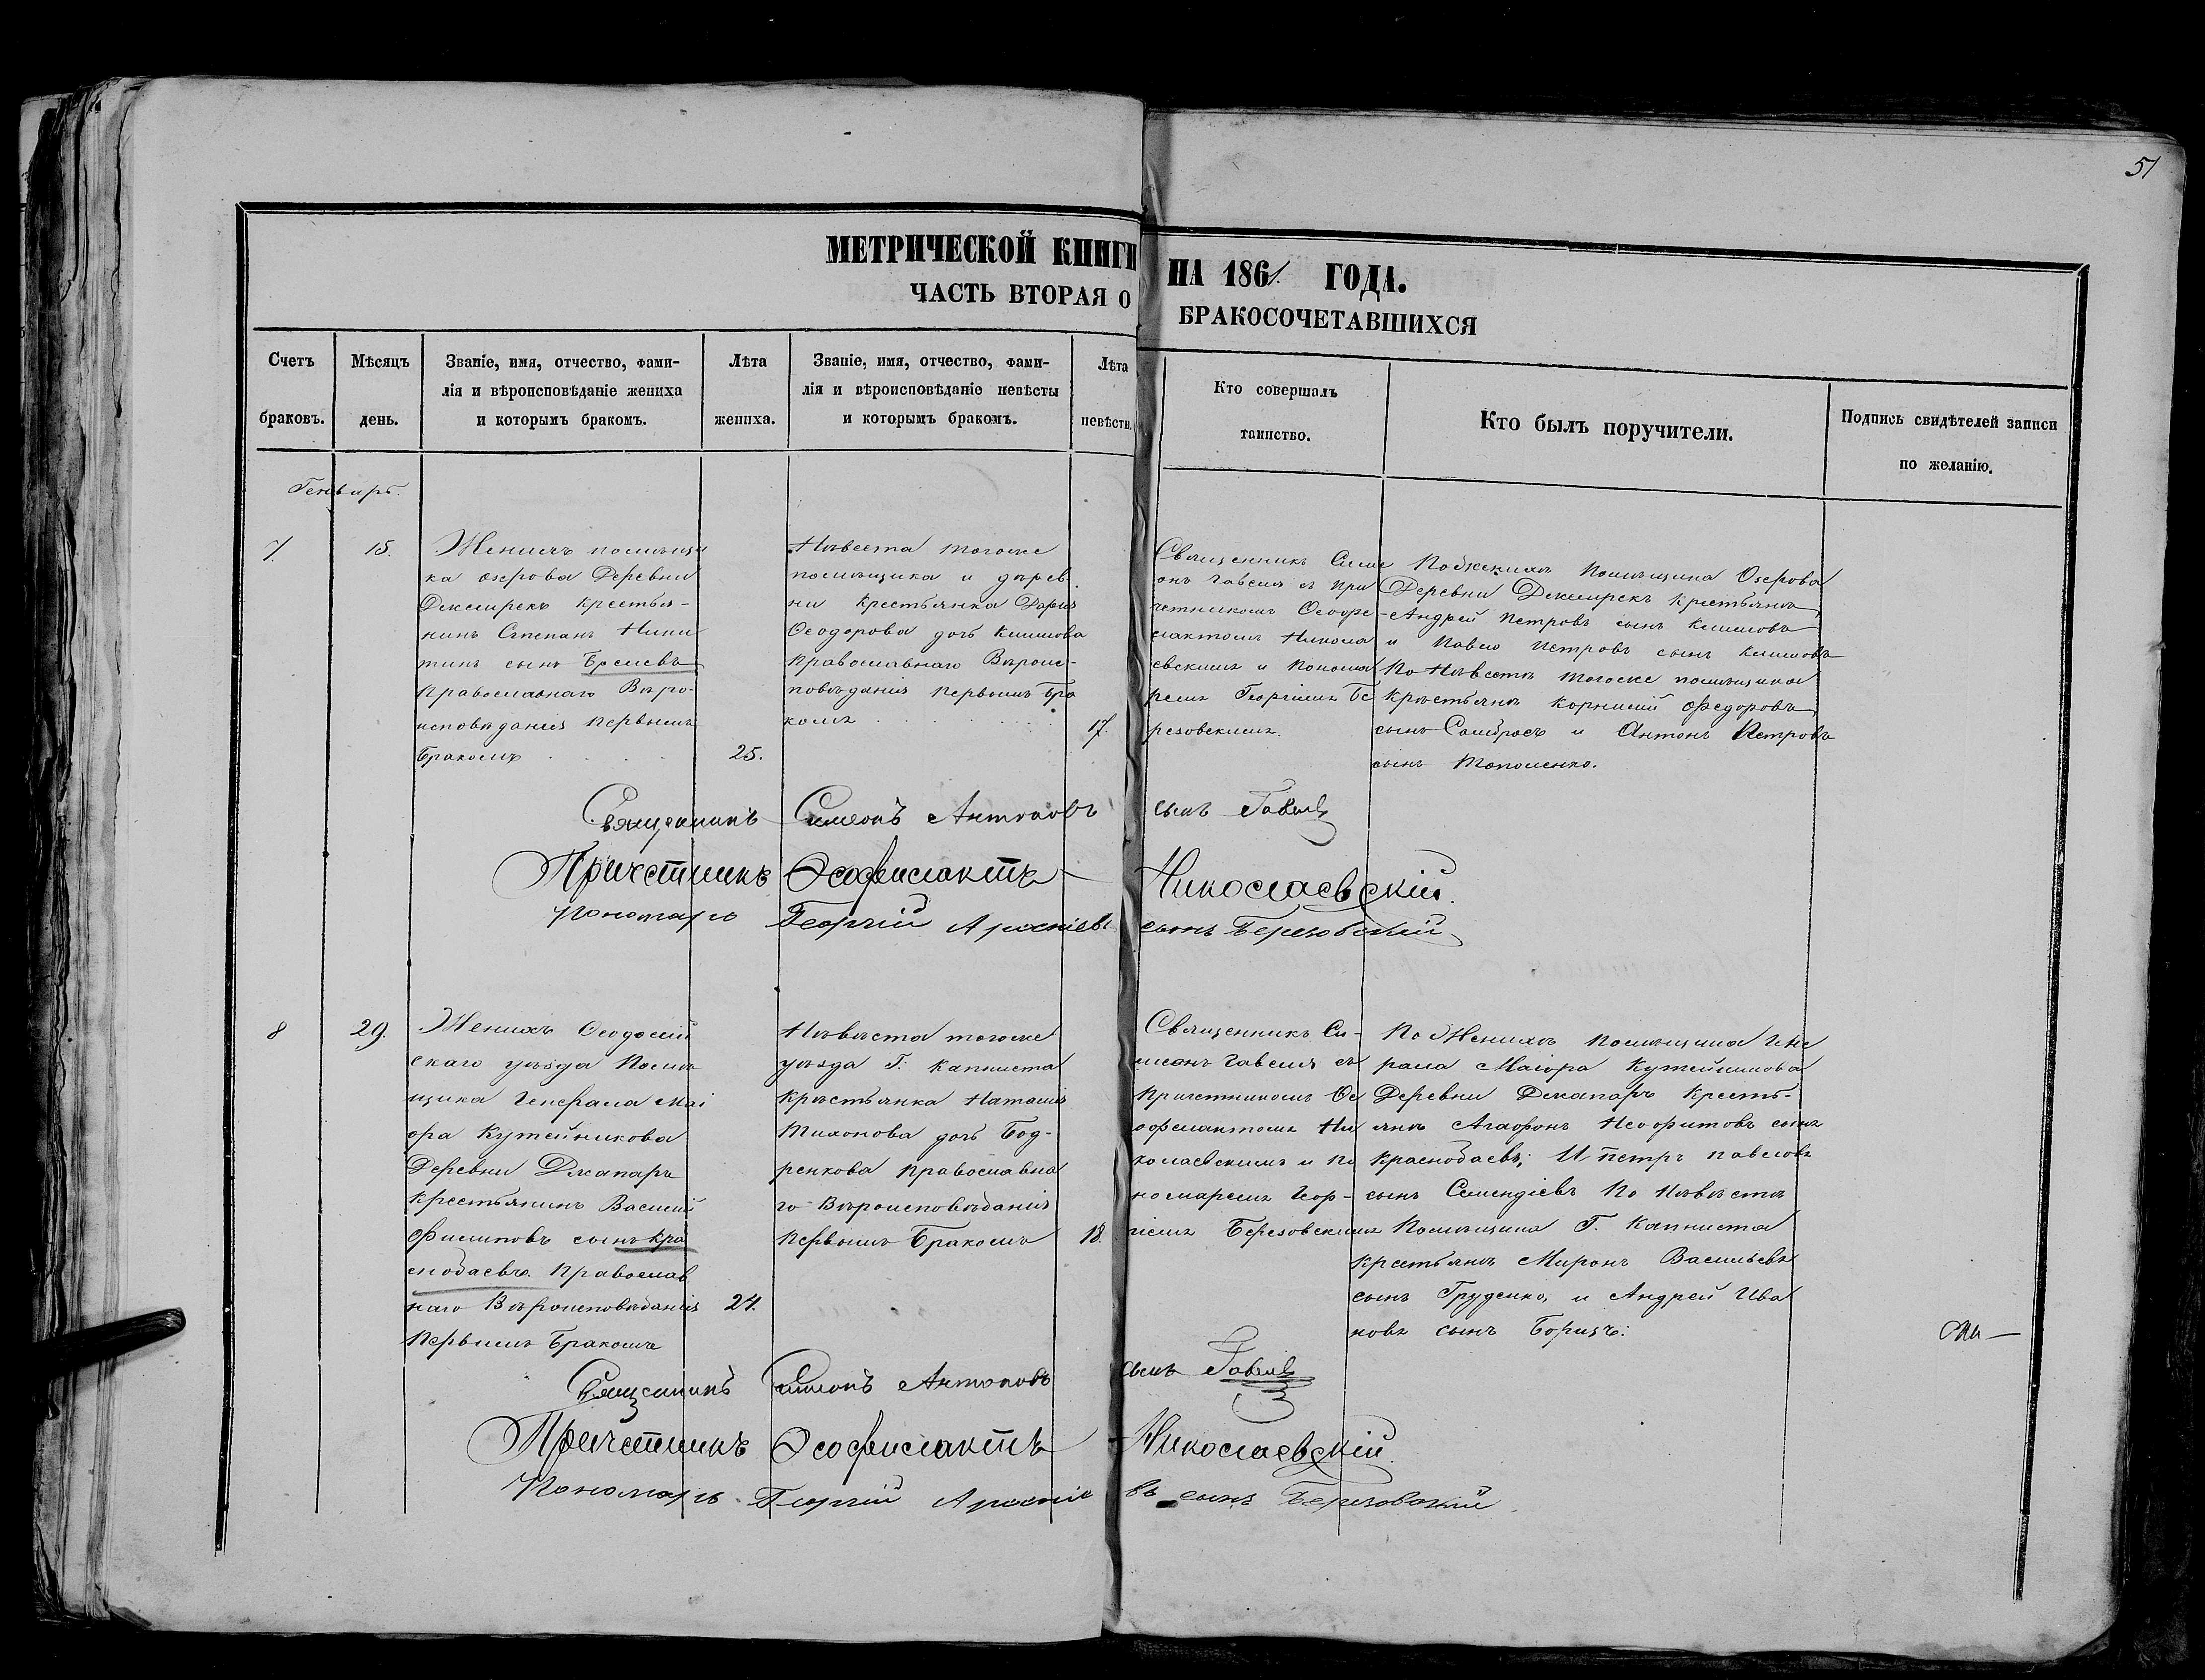 51
МЕТРИЧЕСКОЙ КНИГИ НА 1861. ГОДА.
ЧАСТЬ ВТОРАЯ О БРАКОСОЧЕТАВШИХСЯ
Счетъ браковъ.
Мѣсяцъ день.
Званіе, имя, отчество, фами-
лія и вѣроисповѣданіе жениха
и которымъ бракомъ.
Лѣта жениха.
Званіе, имя, отчество, фами-
лія и вѣроисповѣданіе невѣсты
и которымъ бракомъ.
Лѣта невѣсты.
Кто совершалъ
таинство.
Кто былъ поручители.
Подпись свидѣтелей записи
по желанію.
Генварь.
7.
15.
Женихъ помѣщи
ка Озерова Деревни
Джемрекъ Крестья-
нинъ Степанъ Ники
тинъ сынъ
Православнаго Вѣро-
исповѣданія первымъ
Бракомъ
25.
Невеста тогоже
помѣщика и дерев
ни Крестьянка Дарья
Ѳеодорова дочь Климова
Православнаго Вѣроис-
повѣданія первымъ Бра
комъ
17.
Священникъ Симе
онъ Гавель съ При
четникомъ Ѳеофи
лактомъ Никола
евскимъ и Понома
ремъ Георгіемъ Бе
резовскимъ.
По женихѣ Помѣщика Озерова
Деревни Джемрекъ Крестьянѣ
Андрей Петровъ сынъ Климовъ
и Павелъ Петровъ сынъ Климовъ
По Невестѣ тогоже помѣщика
Крестьянѣ Корнилій Федоровъ
сынъ и Антонъ Петровъ
сынъ Тополенко.
Священникъ Симеонъ Антоновъ сынъ Гавель
Причетникъ Ѳеофилактъ Николаевскій.
Пономарь Георгій Арсеніевъ сынъ Березовскій
8
29.
Женихъ Ѳеодосій
скаго уѣзда Помѣ
щика Генерала Маі
ора Кутейникова
Деревни Джапаръ
Крестьянинъ Василій
Филиповъ сынъ Кра
снобаевъ. Православ
наго Вѣроисповѣданія
Первымъ Бракомъ
24.
Невѣста тогоже
уѣзда Г: Капниста
Крестьянка Наталія
Тихонова дочь Бод-
ренкова Православна
го Вѣроисповѣданія
Первымъ Бракомъ
18.
Священникъ Си-
меонъ Гавель съ
Причетникомъ Ѳе
офилактомъ Ни
колаевскимъ и По
номаремъ Геор-
гіемъ Березовскимъ
По Женихѣ Помѣщика Гене
рала Маіора Кутейникова
Деревни Джапаръ Кресть-
янѣ Агафонъ Неофитовъ сынъ
Краснобаевъ; И Петръ Павловъ
сынъ По Невѣстѣ
Помѣщика Г. Капниста
Крестьянѣ Миронъ Васильевъ
сынъ Груденко, и Андрей Ива
новъ сынъ
Священникъ Симеонъ Антоновъ сынъ Гавель
Причетникъ Ѳеофилактъ Николаевскій.
Пономарь Георгій Арсеніевъ сынъ Березовскій